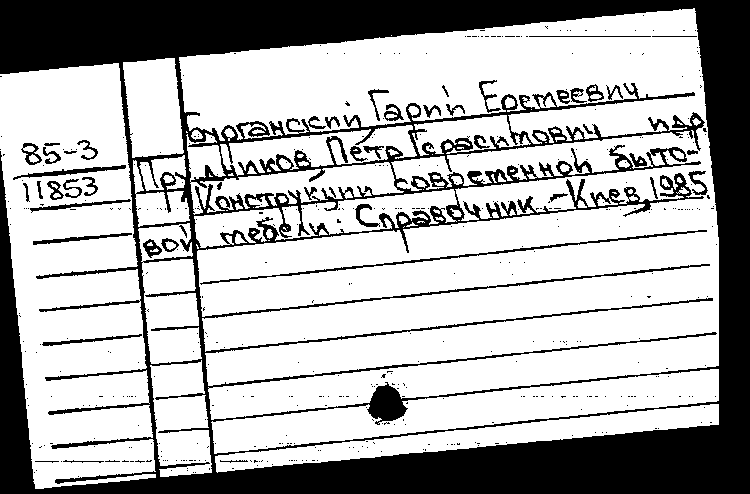 85-3
11853
Бурганский Гарий Еремеевич.
Прудников, Пётр Герасимович идр
Конструкции современной быто-
вой мебели: Справочник.-Киев, 1985